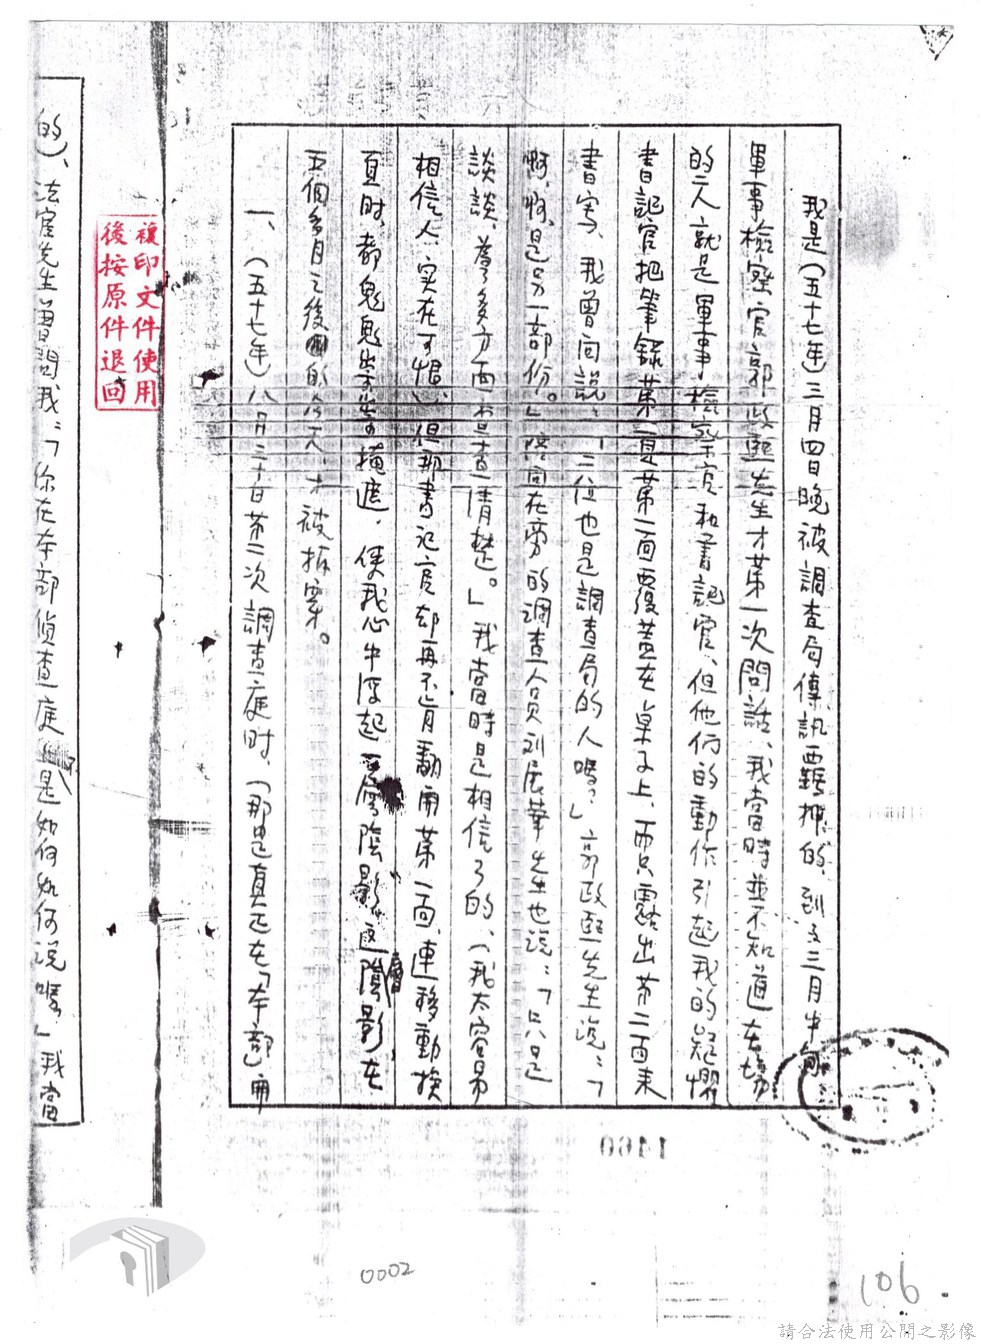 我是(五十七年)三月四日晚被調查局傳訊羈押的、到了三月中旬
軍事檢察官郭政熙先生才第一次問話、我當時並不知道在場
的二人就是軍事檢察官和書記官、但他们的動作引起我的疑懼
書記官把筆錄第一頁第一面覆蓋在桌子上、而只露出第二面來
書寫、我曾问說:「二位也是調查局的人嗎?」郭政熙先生說:「
啊,啊,是另一部份。」陪同在旁的调查人员刘展華先生也说:「只是
談談、為了多方面查清楚。」我當時是相信了的、(我太容易
相信人、实在可恨)、但那書记官却再不肯翻開第一面、連移動换
頁时、都鬼鬼祟祟的掩遮,使我心中浮起一層陰影。這層陰影,在
五個多月之後的今天,才被拆穿。
一、(五十七年)八月三十日第一次調查庭时、(那是真正在「本部」開
的)、法官先生曾問我:「你在本部偵查庭是如何如何说嗎」我當
複印文件使用
後按原件退回
1460
0002
106
請合法使用公開之影像